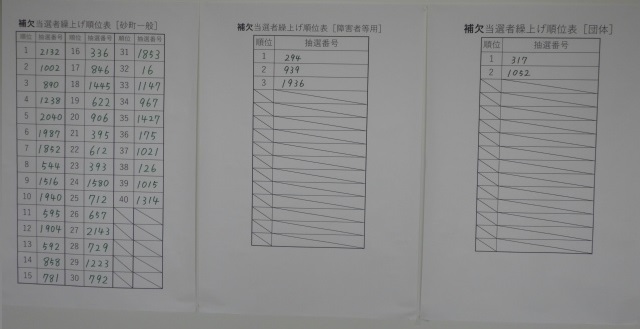 補欠当選者繰上げ順位表［砂町一般］
順位 抽選番号 順位 抽選番号 順位 抽選番号
1 2132 16 336 31 1853
2 1002 17 846 32 16
3 890 18 1445 33 1147
4 1238 19 622 34 967
5 2040 20 906 35 1427
6 1987 21 395 36 175
7 1852 22 612 37 1021
8 544 23 393 38 126
9 1516 24 1580 39 1015
10 1940 25 712 40 1314
11 595 26 657
12 1904 27 2143
13 592 28 729
14 858 29 1223
15 781 30 792
補欠当選者繰上げ順位表［障害者等用］
順位 抽選番号
1 294
2 939
3 1936
補欠当選者繰上げ順位表［団体］
順位 抽選番号
1 317
2 1052